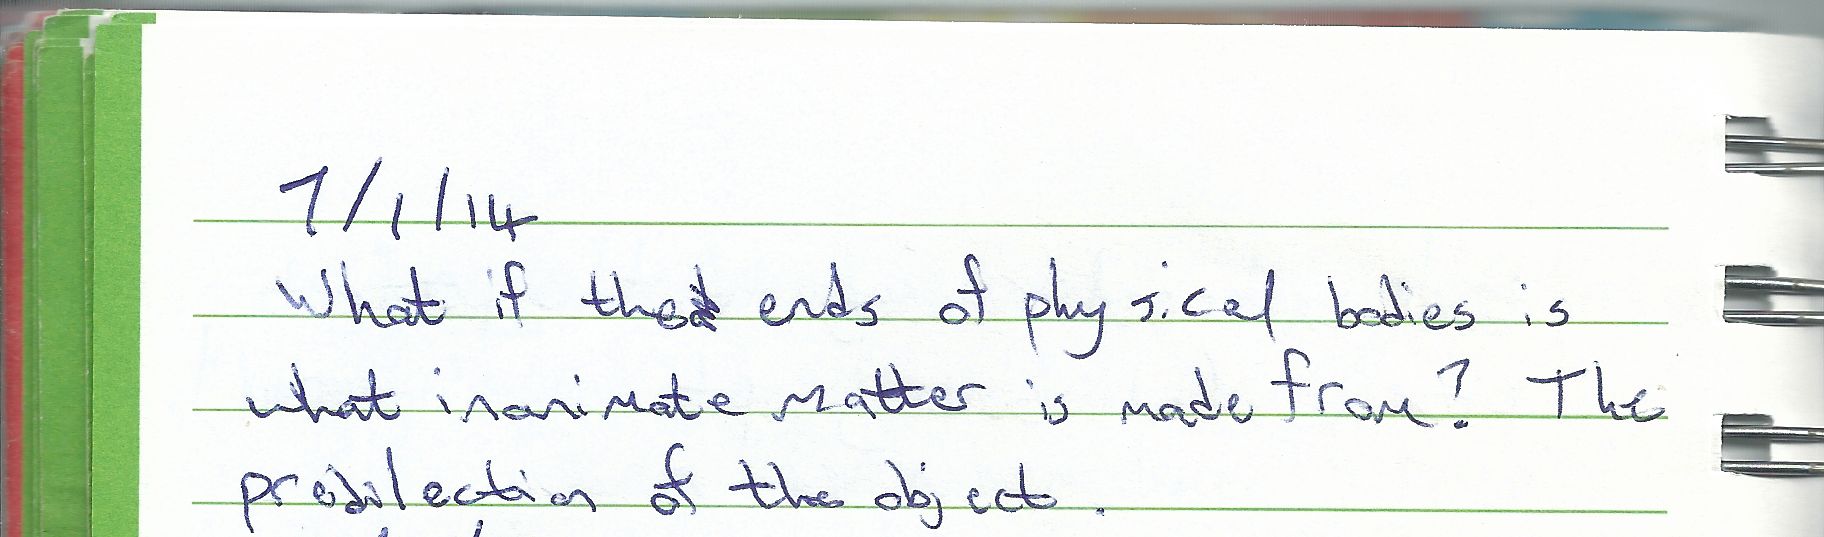 7/1/14
What if the ends of physical bodies is
what inanimate matter is made from? The
predilection of the object.